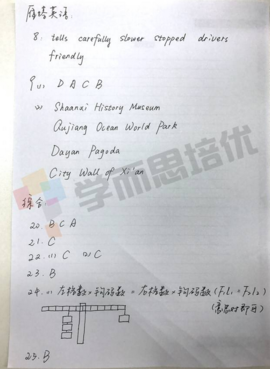 雁塔英语
8. tells carefully slower stopped drivers
friendly
9. (1) D A C B
(2) Shaanxi History Museum
Qujiang Ocean World Park
Dayan Pagoda
City Wall of Xi'an
学而思培优
综合:
20. B C A
21. C
22. (1) C (2) C
23. B
24. (1) 左格数×钩码数 = 右格数×钩码数 (F₁l₁ = F₂l₂)
25. B